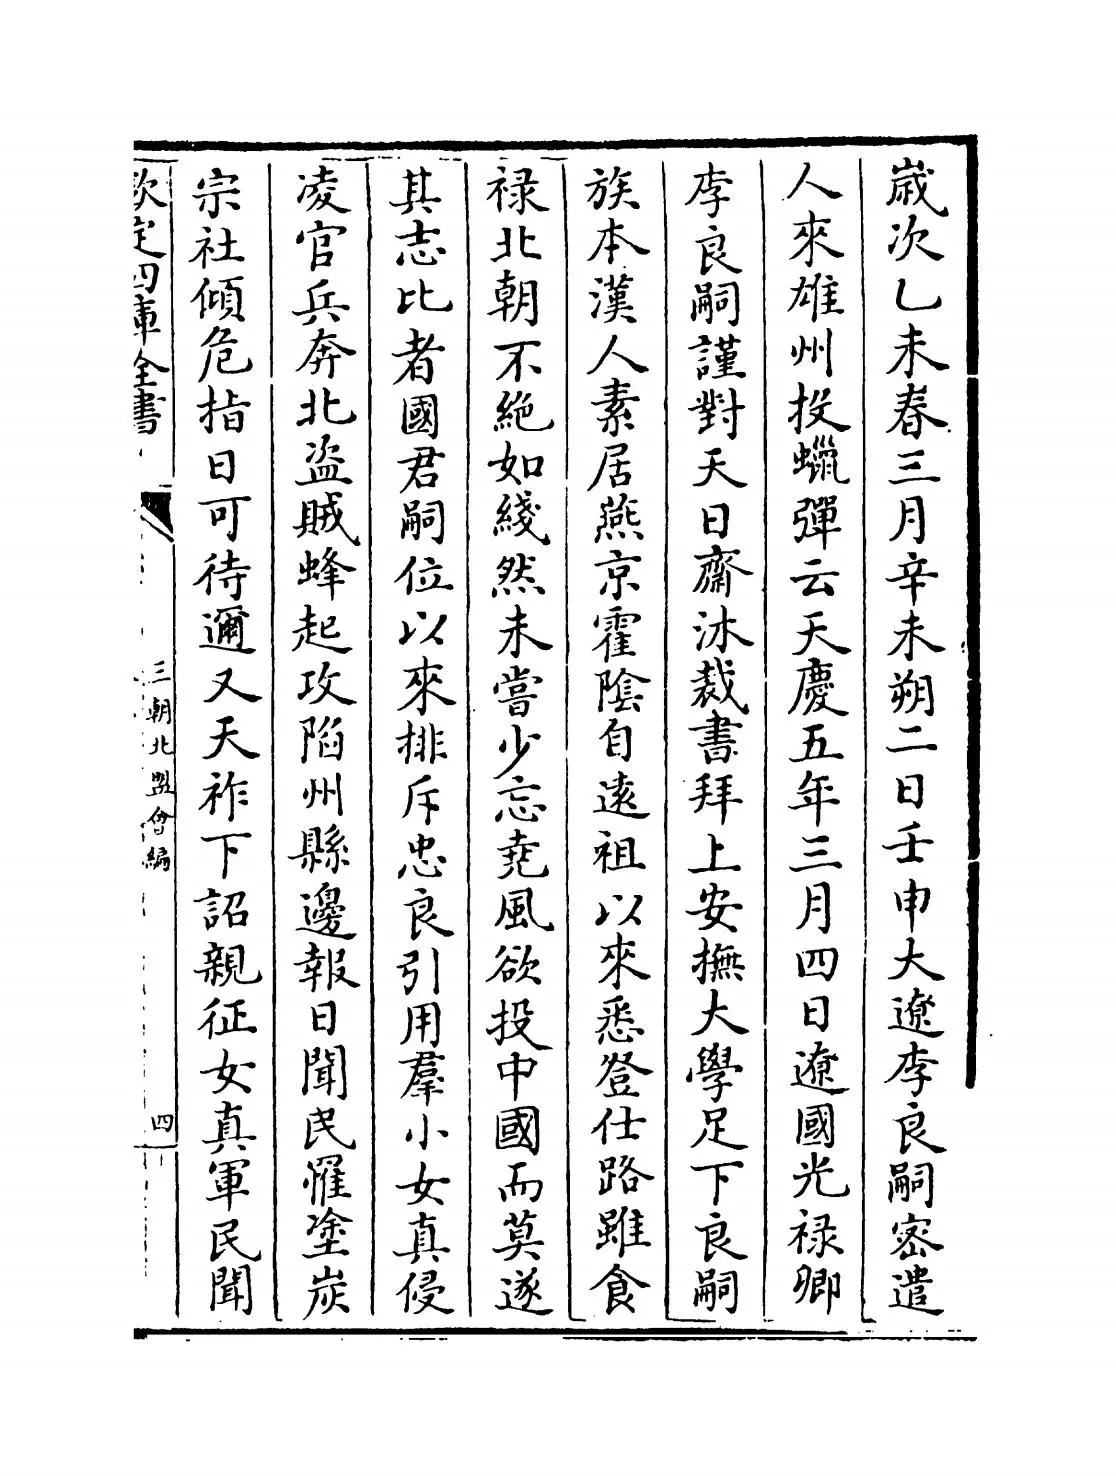 歲次乙未春三月辛未朔二日壬申大遼李良嗣密遣
人來雄州投蠟彈云天慶五年三月四日遼國光禄卿
李良嗣謹對天日齋沐裁書拜上安撫大學足下良嗣
族本漢人素居燕京霍隂自逺祖以來悉登仕路雖食
禄北朝不絶如綫然未嘗少忘堯風欲投中國而莫遂
其志比者國君嗣位以來排斥忠良引用羣小女真侵
凌官兵奔北盗賊蜂起攻陷州縣邊報日聞民罹塗炭
宗社傾危指日可待邇又天祚下詔親征女真軍民聞
欽定四庫全書
三朝北盟會編
四